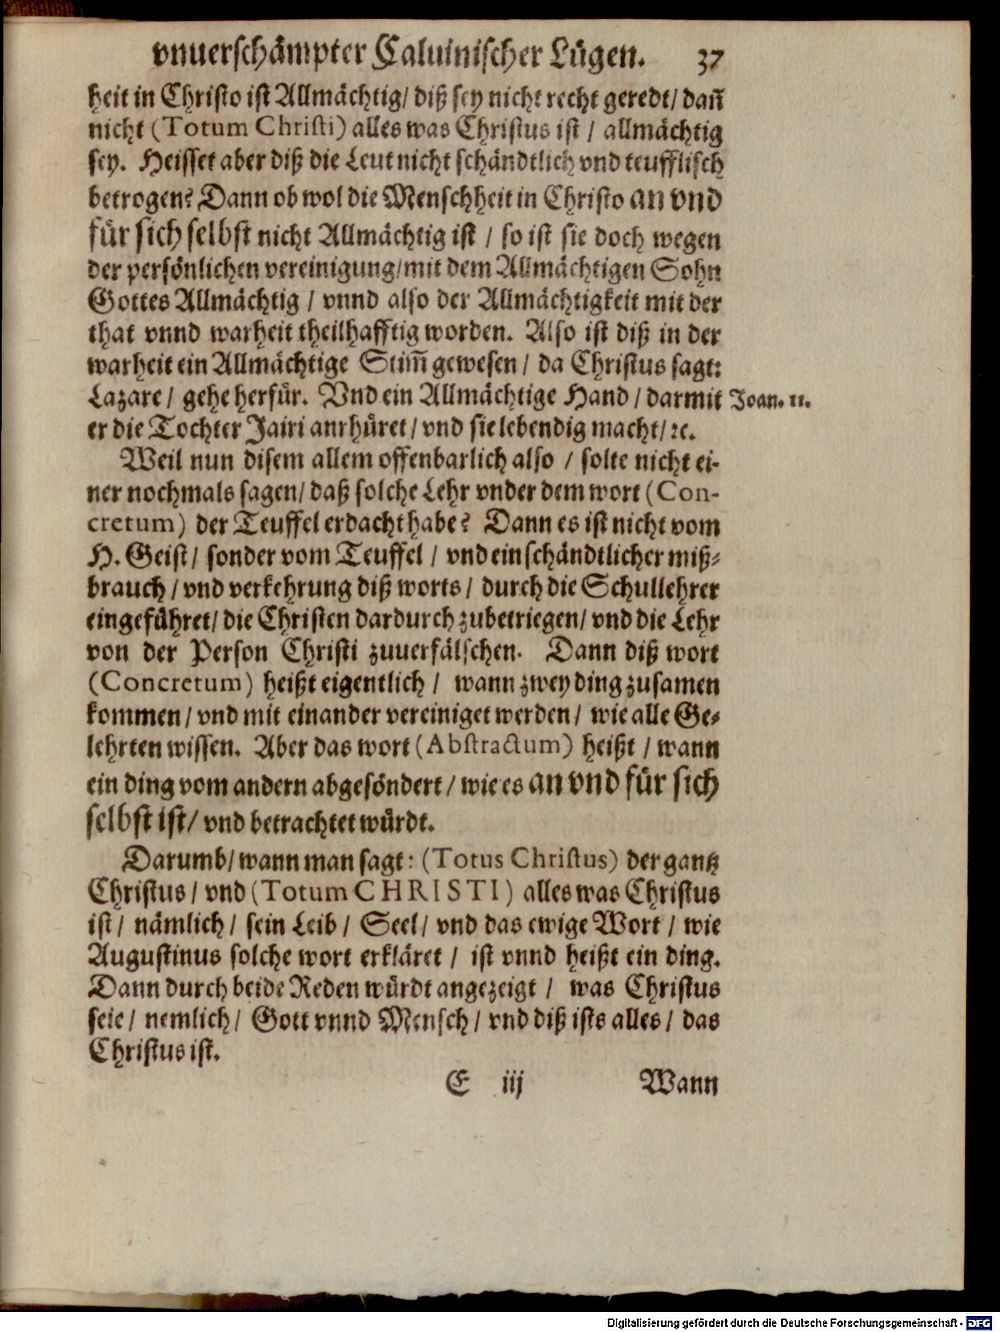 vnuerschämpter Caluinischer Lügen. 37
heit in Christo ist Allmächtig/ diß sey nicht recht geredt/ dañ
nicht (Totum Christi) alles was Christus ist / allmächtig
sey. Heisset aber diß die Leut nicht schändtlich vnd teufflisch
betrogen? Dann ob wol die Menschheit in Christo an vnd
für sich selbst nicht Allmächtig ist / so ist sie doch wegen
der persönlichen vereinigung/mit dem Allmächtigen Sohn
Gottes Allmächtig / vnnd also der Allmächtigkeit mit der
that vnnd warheit theilhafftig worden. Also ist diß in der
warheit ein Allmächtige Stim̃ gewesen / da Christus sagt:
Lazare / gehe herfür. Vnd ein Allmächtige Hand / darmit Joan. 11.
er die Tochter Jairi anrhüret/ vnd sie lebendig macht/ꝛc.
Weil nun disem allem offenbarlich also / solte nicht ei-
ner nochmals sagen/ daß solche Lehr vnder dem wort (Con-
cretum) der Teuffel erdacht habe? Dann es ist nicht vom
H. Geist/ sonder vom Teuffel / vnd ein schändtlicher miß-
brauch / vnd verkehrung diß worts / durch die Schullehrer
eingeführet/ die Christen dardurch zubetriegen/ vnd die Lehr
von der Person Christi zuuerfälschen. Dann diß wort
(Concretum) heißt eigentlich / wann zwey ding zusamen
kommen / vnd mit einander vereiniget werden / wie alle Ge-
lehrten wissen. Aber das wort (Abstractum) heißt / wann
ein ding vom andern abgesöndert / wie es an vnd für sich
selbst ist/ vnd betrachtet würdt.
Darumb/ wann man sagt: (Totus Christus) der gantz
Christus / vnd (Totum CHRISTI) alles was Christus
ist / nämlich / sein Leib / Seel / vnd das ewige Wort / wie
Augustinus solche wort erkläret / ist vnnd heißt ein ding.
Dann durch beide Reden würdt angezeigt / was Christus
seie / nemlich / Gott vnnd Mensch / vnd diß ists alles / das
Christus ist.
E iij Wann
Digitalisierung gefördert durch die Deutsche Forschungsgemeinschaft - DFG